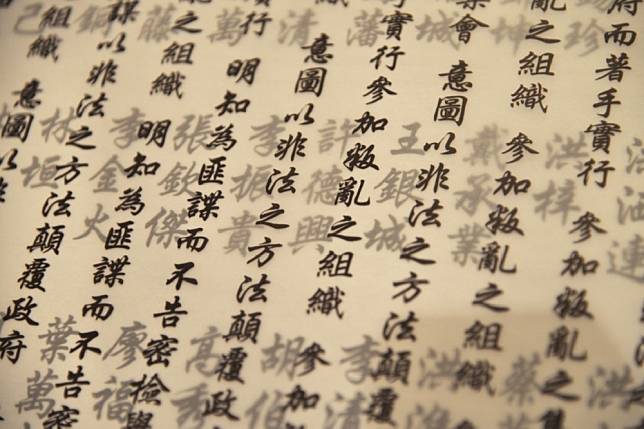 府而著手實行 參加叛亂之
亂之組織 參加叛亂之組織
會 意圖以非法之方法顛覆
實行參加叛亂之組織 參加
意圖以非法之方法顛覆政
行 明知為匪諜而不告密檢舉
之組織 明知為匪諜而不告密
諜以非法之方法顛覆政府
組織 意圖以非
珍
坤
城
藩
清
萬
藤
連
洪梓
戴承業
王銀城
許德興
李振貴
張欽傑
李金火
林垣
洪
蔡
洪
李清
胡伯
高秀
廖福
葉萬